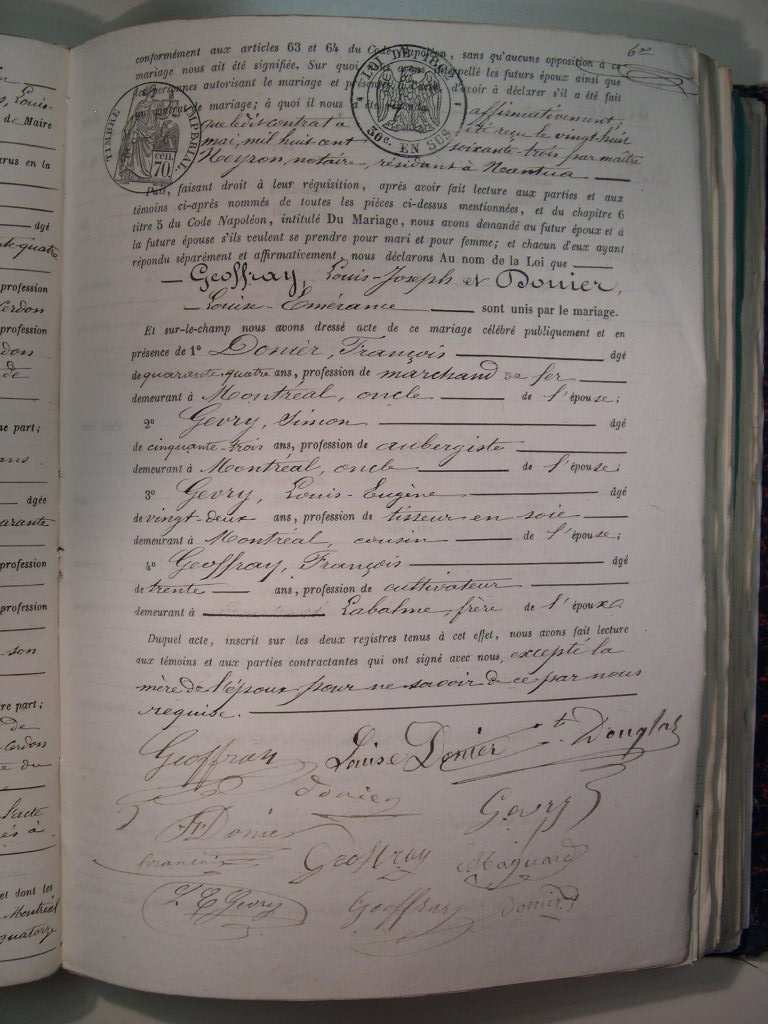 6
conformément aux articles 63 et 64 du Code Napoléon, sans qu'aucune opposition à ce
mariage nous ait été signifiée. Sur quoi avons interpellé les futurs époux ainsi que
les personnes autorisant le mariage et présentes à l'acte d'avoir à déclarer s'il a été fait
un contrat de mariage; à quoi il nous a été répondu affirmativement;
que ledit contrat a été reçu le vingt-huit
mai, mil huit cent soixante-trois par maître
Neyron, notaire, résidant à Nantua
TIMBRE IMPÉRIAL
70
LOI DE 1862
50c. EN SUS
Puis, faisant droit à leur réquisition, après avoir fait lecture aux parties et aux
témoins ci-après nommés de toutes les pièces ci-dessus mentionnées, et du chapitre 6
titre 5 du Code Napoléon, intitulé Du Mariage, nous avons demandé au futur époux et à
la future épouse s'ils veulent se prendre pour mari et pour femme; et chacun d'eux ayant
répondu séparément et affirmativement, nous déclarons Au nom de la Loi que
Geoffray, Louis-Joseph et Donier,
Louise-Emérance sont unis par le mariage.
Et sur-le-champ nous avons dressé acte de ce mariage célébré publiquement et en
présence de 1o Donier, François âgé
de quarante-quatre ans, profession de marchand de fer
demeurant à Montréal, oncle de l'épouse;
2o Gevry, Simon âgé
de cinquante-trois ans, profession de aubergiste
demeurant à Montréal, oncle de l'épouse;
3o Gevry, Louis-Eugène âgé
de vingt-deux ans, profession de tisseur en soie
demeurant à Montréal, cousin de l'épouse;
4o Geoffray, François âgé
de trente ans, profession de cultivateur
demeurant à Labalme, frère de l'époux
Duquel acte, inscrit sur les deux registres tenus à cet effet, nous avons fait lecture
aux témoins et aux parties contractantes qui ont signé avec nous, excepté la
mère de l'époux pour ne savoir de ce par nous
requise.
Geoffray Louise Donier Douglas
Donier Gevry
Ft Donier
François Geoffray Maguard
L E Gevry Geoffray Donier